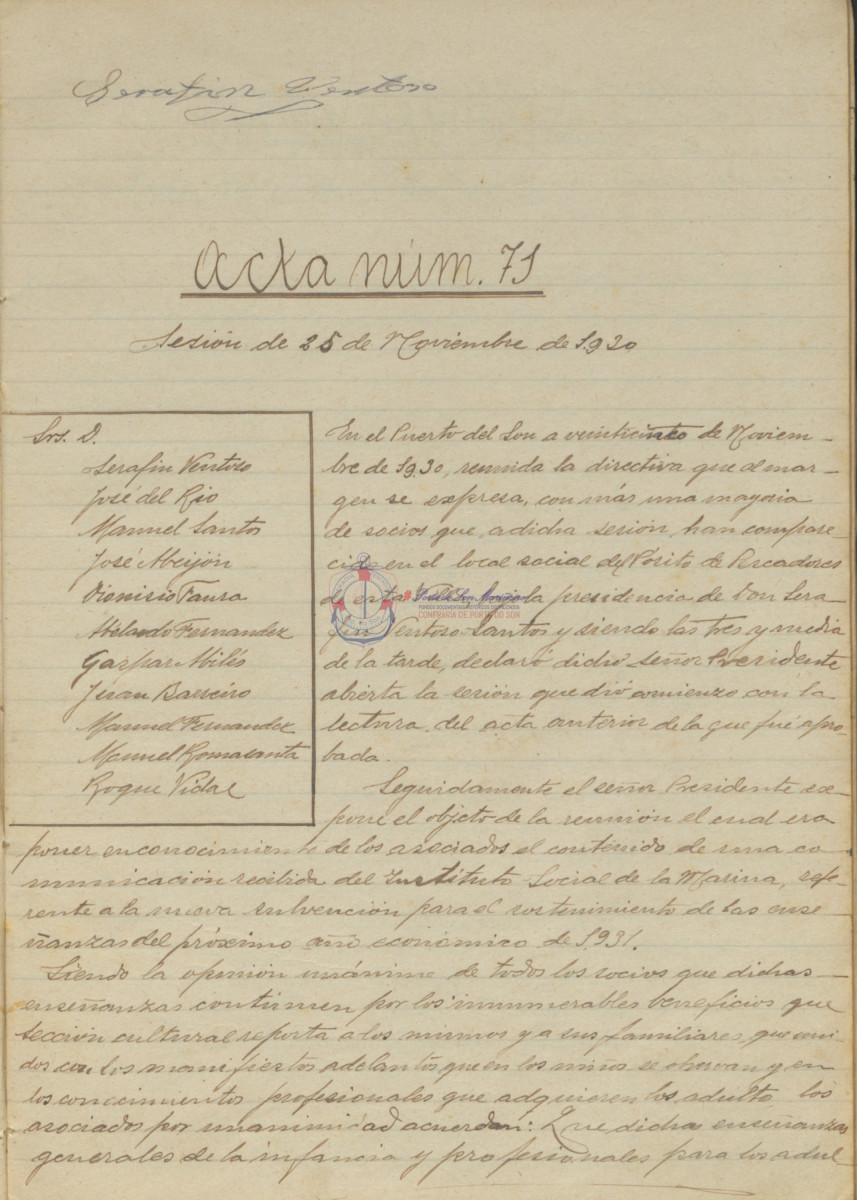 Serafín Ventoso
Acta núm. 71
Sesión de 25 de Noviembre de 1.930
Srs. D.
Serafin Ventoso
José del Rio
Manuel Santos
José Abeijón
Dionisio Faura
Abelardo Fernandez
Gaspar Abilés
Juan Barreiro
Manuel Fernandez
Manuel Romasanta
Roque Vidal
En el Puerto del Son a veinticinco de Noviem-
bre de 1930, reunida la directiva que al mar-
gen se expresa, con más una mayoria
de socios que, a dicha sesión, han compare-
cido en el local social del Pósito de Pescadores
de esta Villa, bajo la presidencia de Don Sera-
fin Ventoso Santos y siendo las tres y media
de la tarde, declaró dicho señor Presidente
abierta la sesión que dió comienzo con la
lectura del acta anterior de la que fué apro-
bada.
Seguidamente el señor Presidente ex-
pone el objeto de la reunión el cual era
poner en conocimiento de los asociados el contenido de una co-
municación recibida del Instituto Social de la Marina, refe-
rente a la nueva subvención para el sostenimiento de las ense-
ñanzas del próximo año económico de 1.931.
Siendo la opinión unánime de todos los socios que dichas
enseñanzas continuen por los innumerables beneficios que
sección cultural reporta a los mismos y a sus familiares, que uni-
dos con los manifiestos adelantos que en los niños se observan y en
los conocimientos profesionales que adquieren los adulto, los
asociados por unanimidad acuerdan: Que dicha enseñanzas
generales de la infancia y profesionales para los adul
CONFRARÍA DE PORTO DO SON